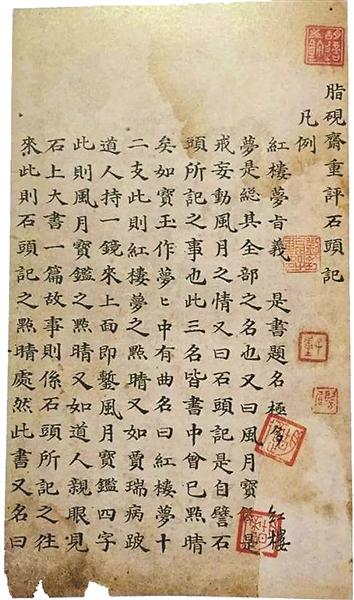 脂硯齋重評石頭記
凡例
紅樓夢旨義　是書題名極多　紅樓
夢是總其全部之名也又曰風月寶鑑是
戒妄動風月之情又曰石頭記是自譬石
頭所記之事也此三名皆書中曾已點睛
矣如寶玉作夢ヒ中有曲名曰紅樓夢十
二支此則紅樓夢之點睛又如賈瑞病跛
道人持一鏡來上面即鏨風月寶鑑四字
此則風月寶鑑之點睛又如道人親眼見
石上大書一篇故事則係石頭所記之往
來此則石頭記之點睛處然此書又名曰